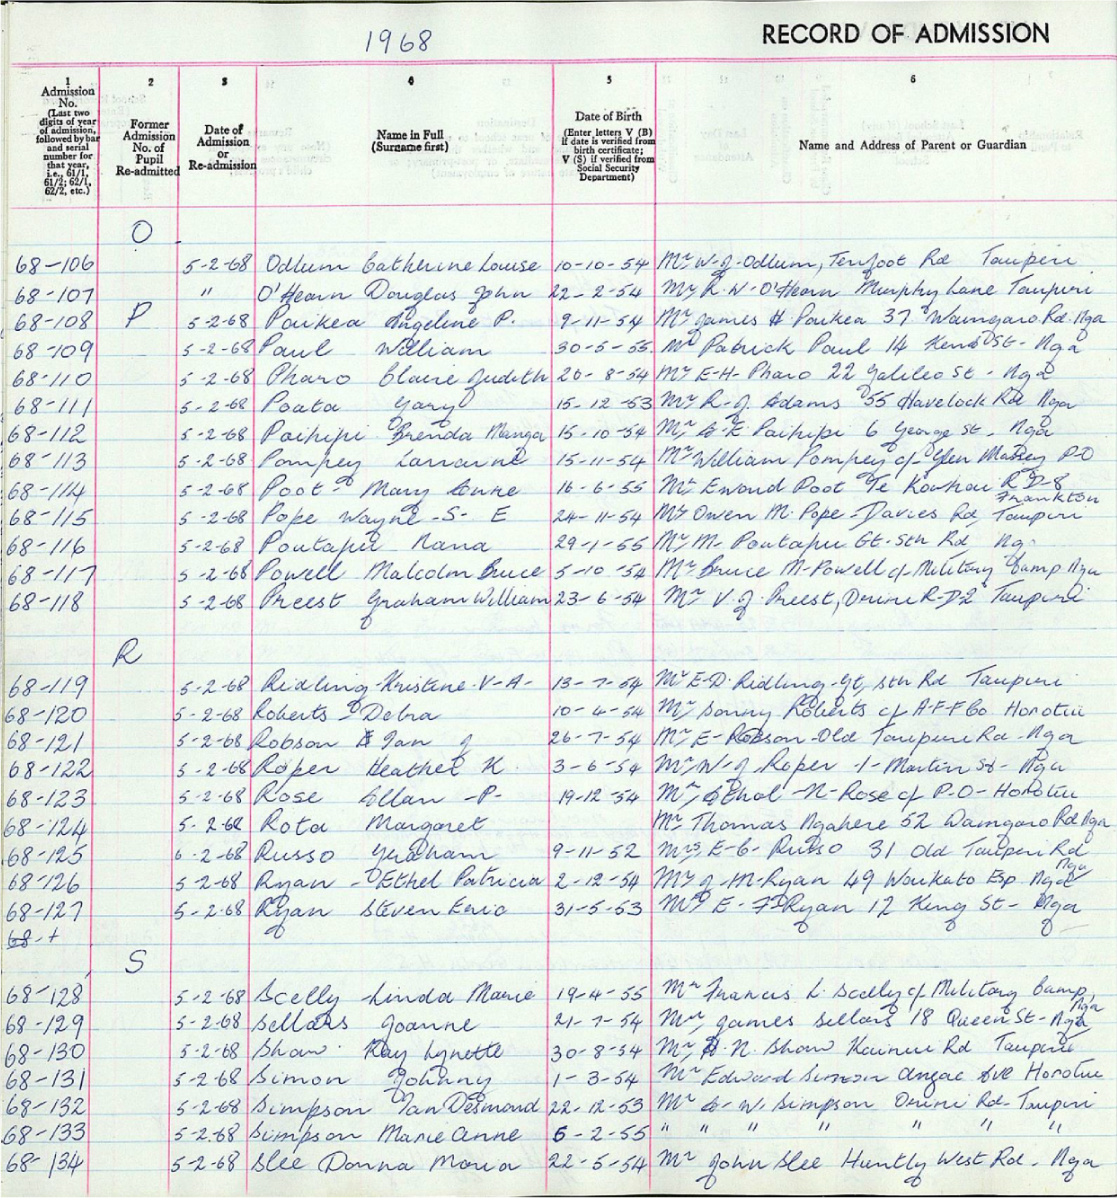 1968 RECORD OF ADMISSION
1 Admission No. (Last two digits of year of admission, followed by bar and serial number for that year, i.e., 61/1, 61/2; 62/1, 62/2, etc.)
2 Former Admission No. of Pupil Re-admitted
3 Date of Admission or Re-admission
4 Name in Full (Surname first)
5 Date of Birth (Enter letters V (B) if date is verified from birth certificate; V (S) if verified from Social Security Department)
6 Name and Address of Parent or Guardian
O
68-106 5-2-68 Odlum Catherine Louise 10-10-54 Mr W-J-Odlum, Tenfoot Rd Taupiri
68-107 " O'Hearn Douglas John 22-2-54 Mr R-W-O'Hearn Murphy Lane Taupiri
68-108 P 5-2-68 Paikea Angeline P. 9-11-54 Mr James H Paikea 37 Waingaro Rd Nga
68-109 5-2-68 Paul William 30-5-55 Mr Patrick Paul 14 Kent St- Nga
68-110 5-2-68 Pharo Claire Judith 20-8-54 Mr E-H- Pharo 22 Galileo St - Nga
68-111 5-2-68 Poata Gary 15-12-53 Mr R-J. Adams 55 Havelock Rd Nga
68-112 5-2-68 Paihipi Brenda Manga 15-10-54 Mr Paihipi 6 George St. Nga
68-113 5-2-68 Pompey Larraine 15-11-54 Mr William Pompey c/- Glen Massey P-O
68-114 5-2-68 Poot- Mary Anne 16-6-55 Mr Ewoud Poot Te Kowhai R-D-8 Frankton
68-115 5-2-68 Pope Wayne-S- E 24-11-54 Mr Owen M. Pope-Davies Rd, Taupiri
68-116 5-2-68 Poutapu Nana 29-1-55 Mr M- Poutapu Gt-Sth Rd Nga
68-117 5-2-68 Powell Malcolm Bruce 5-10-54 Mr Bruce M-Powell c/- Military Camp Nga
68-118 5-2-68 Preest Graham William 23-6-54 Mr V-J-Preest, Orini R-D-2 Taupiri
R
68-119 5-2-68 Ridling-Kristine-V-A- 13-7-54 Mr E-D-Ridling-Gt, Sth Rd Taupiri
68-120 5-2-68 Roberts-Debra 10-4-54 Mr Sonny Roberts c/- A-F-F Co Horotiu
68-121 5-2-68 Robson Ian J 26-7-54 Mr E-Robson-Old Taupiri Rd-Nga
68-122 5-2-68 Roper Heather K. 3-6-54 Mr W-J-Roper -1- Martin St- Nga
68-123 5-2-68 Rose Allan -P- 19-12-54 Mr -N-Rose c/- P-O-Horotiu
68-124 5-2-68 Rota Margaret Mr Thomas Ngahere 52 Waingaro Rd Nga
68-125 6-2-68 Russo Graham 9-11-52 Mrs E-C- Russo 31 Old Taupiri Rd Nga
68-126 5-2-68 Ryan -Ethel Patricia 2-12-54 Mr J-M-Ryan 49 Waikato Esp Nga
68-127 5-2-68 Ryan Steven Eric 31-5-53 Mr E- Ryan 12 King St- Nga
68-+
S
68-128 5-2-68 Scelly Linda Marie 19-4-55 Mr Francis L. Scelly c/- Military Camp, Nga
68-129 5-2-68 Sellars Joanne 21-7-54 Mr James Sellars 18 Queen St-Nga
68-130 5-2-68 Shaw Kay Lynette 30-8-54 Mr N. Shaw Kainui Rd Taupiri
68-131 5-2-68 Simon Johnny 1-3-54 Mr Edward Simon Anzac Ave Horotiu
68-132 5-2-68 Simpson Ian Desmond 22-12-53 Mr W. Simpson Orini Rd-Taupiri
68-133 5-2-68 Simpson Marie Anne 5-2-55 " " " " " " "
68-134 5-2-68 Slee Donna Maria 22-5-54 Mr John Slee Huntly West Rd- Nga